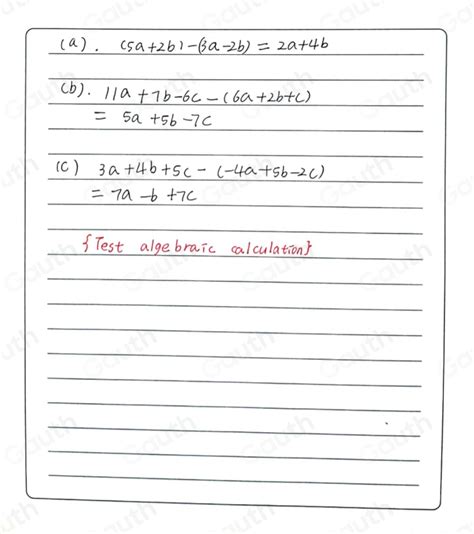 (a). (5a+2b)-(3a-2b) = 2a+4b
(b). 11a+7b-6c-(6a+2b+c)
= 5a+5b-7c
(c) 3a+4b+5c-(-4a+5b-2c)
= 7a-b+7c
{Test algebraic calculation}
Gauth